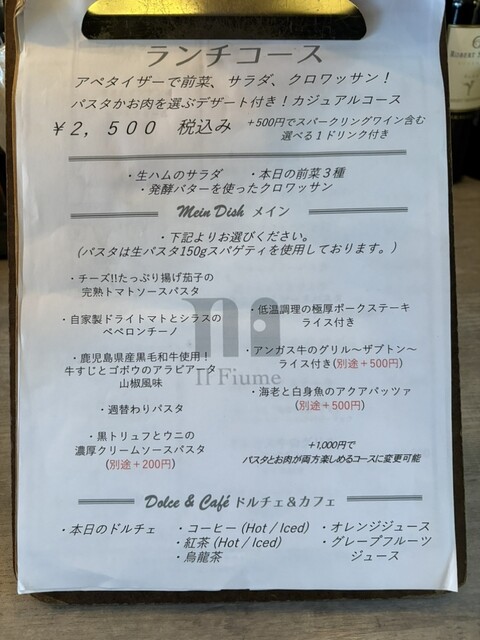 ランチコース
アペタイザーで前菜、サラダ、クロワッサン！
パスタかお肉を選ぶデザート付き！カジュアルコース
￥2，500　税込み
+500円でスパークリングワイン含む
選べる１ドリンク付き
・生ハムのサラダ　・本日の前菜３種
・発酵バターを使ったクロワッサン
Mein Dish メイン
・下記よりお選びください。
(パスタは生パスタ150gスパゲティを使用しております。)
・チーズ!!たっぷり揚げ茄子の
完熟トマトソースパスタ
・自家製ドライトマトとシラスの
ペペロンチーノ
・鹿児島県産黒毛和牛使用！
牛すじとゴボウのアラビアータ
山椒風味
・週替わりパスタ
・黒トリュフとウニの
濃厚クリームソースパスタ
(別途＋200円)
・低温調理の極厚ポークステーキ
ライス付き
・アンガス牛のグリル～ザブトン～
ライス付き(別途＋500円)
・海老と白身魚のアクアパッツァ
(別途＋500円)
+1,000円で
パスタとお肉が両方楽しめるコースに変更可能
Il Fiume
Dolce & Café ドルチェ＆カフェ
・本日のドルチェ
・コーヒー (Hot / Iced)
・紅茶 (Hot / Iced)
・烏龍茶
・オレンジジュース
・グレープフルーツ
ジュース